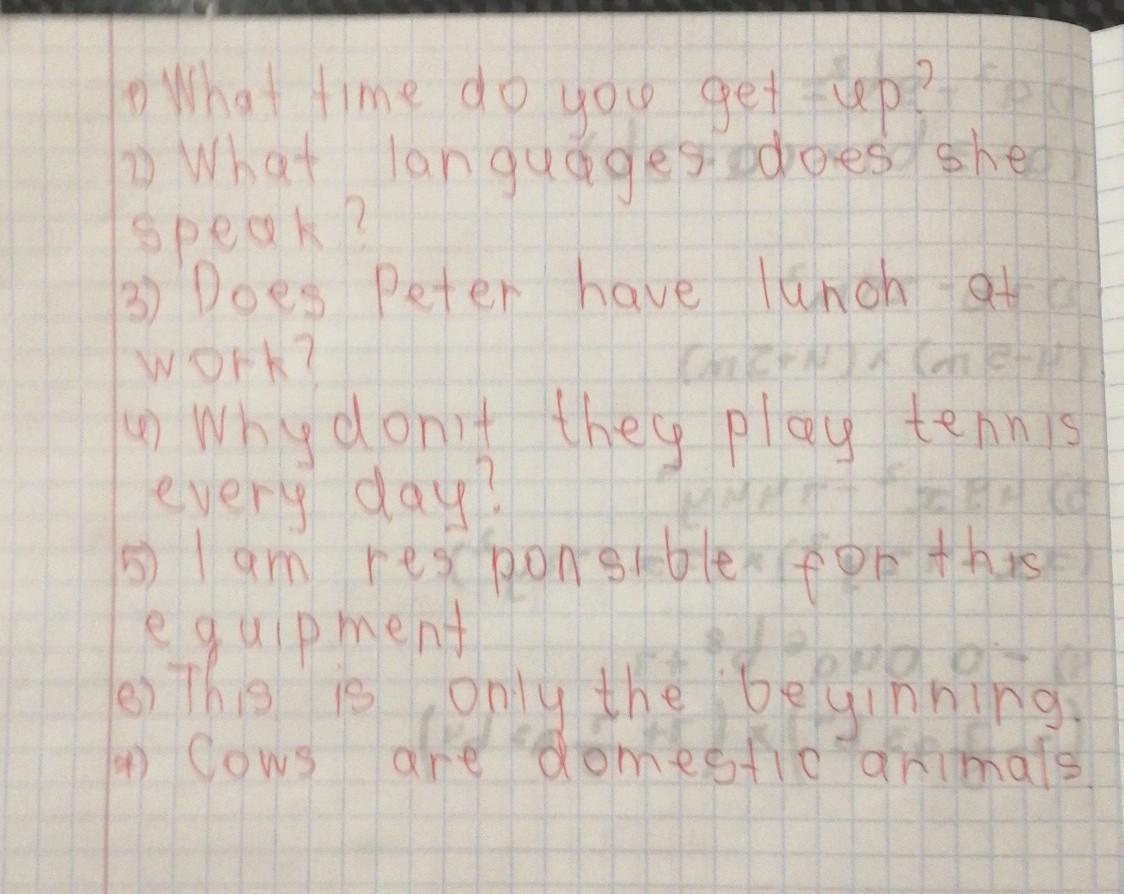 1) What time do you get up?
2) What languages does she
speak?
3) Does Peter have lunch at
work?
4) Why don't they play tennis
every day?
5) I am responsible for this
equipment
6) This is only the beyinning.
7) Cows are domestic animals.